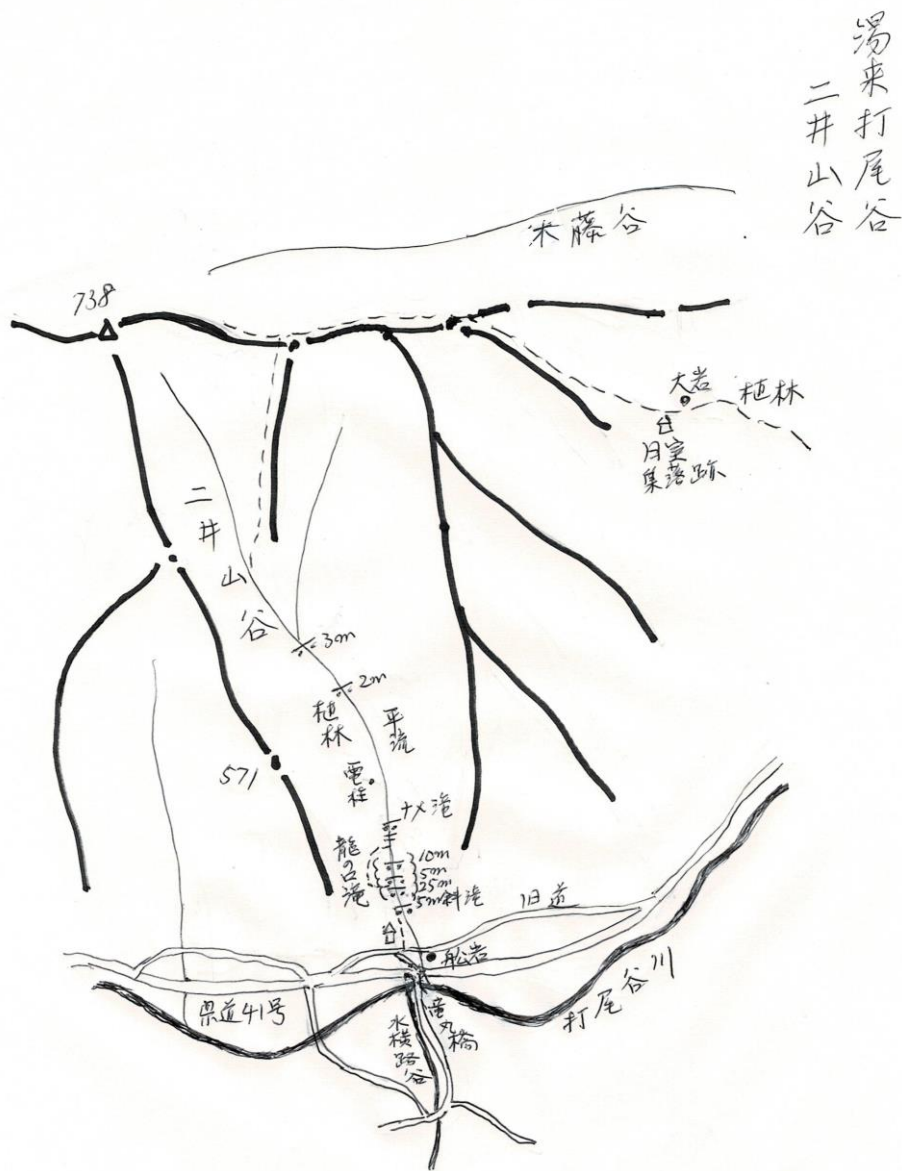 湯来打尾谷
二井山谷
米藤谷
738
大岩
植林
日室
集落跡
二井山谷
3m
2m
植林
平流
電柱
571
ナメ滝
龍の口滝
10m
5m
25m
5m斜滝
旧道
船岩
県道41号
打尾谷川
水横路谷
竜丸橋